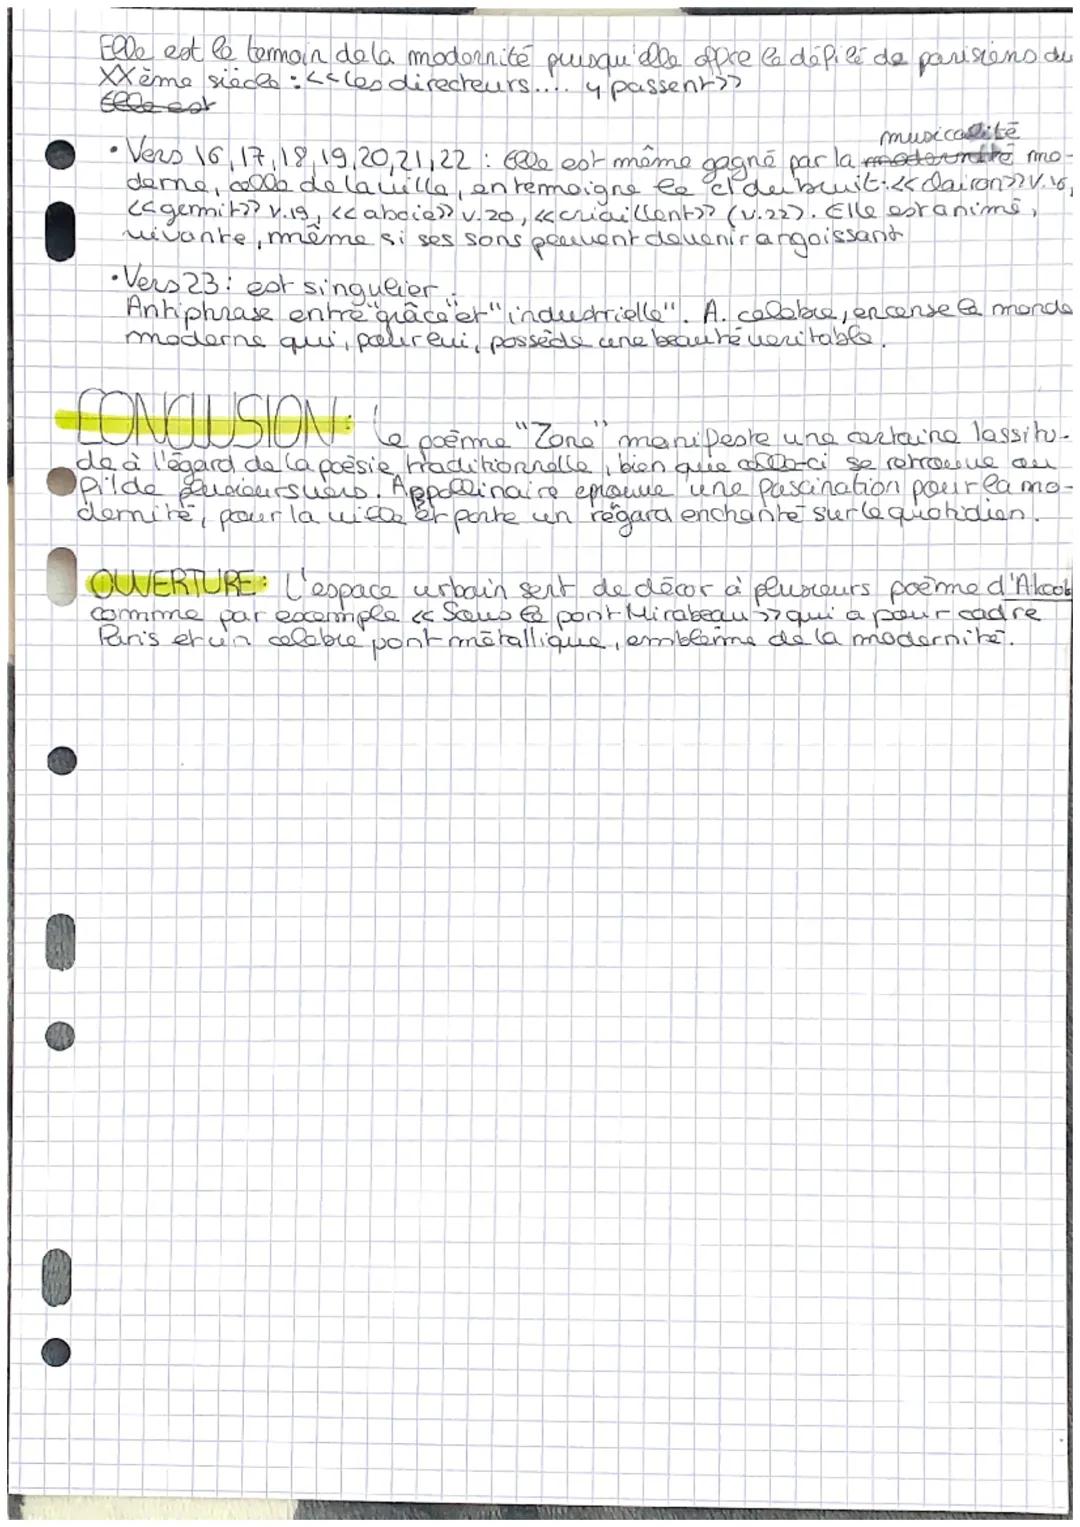 Elle est le temoin de la modernité puisqu'elle offre le défilé de parisiens du
XXème siècle : <<les directeurs.... y passent>>
Elle est
musicalité
• Vers 16,17,18,19,20,21,22 : Elle est même gagné par la modernité mo-
derne, celle de la ville, en temoigne le cl de bruit. << Clairon>> v.16,
<<gemit>> v.19, <<aboie>> v.20, <<criaillent>> (v.22). Elle est animé,
vivante, même si ses sons peuvent devenir angoissant
• Vers 23 : est singulier :
Antiphrase entre "grâce" et "industrielle". A. celebre, encense le monde
moderne qui, pour lui, possède une beauté veritable.
CONCLUSION : Le poème "Zone" manifeste une certaine lassitu-
de à l'égard de la poésie traditionnelle, bien que celle-ci se retrouve au
fil de plusieurs vers. Appollinaire eprouve une fascination pour la mo-
dernité, pour la ville et porte un régard enchanté sur le quotidien.
OUVERTURE : L'espace urbain sert de décor à plusieurs poème d'Alcool
comme par excemple << Sous le pont Mirabeau >> qui a pour cadre
Paris et un celebre pont métallique, emblème de la modernité.